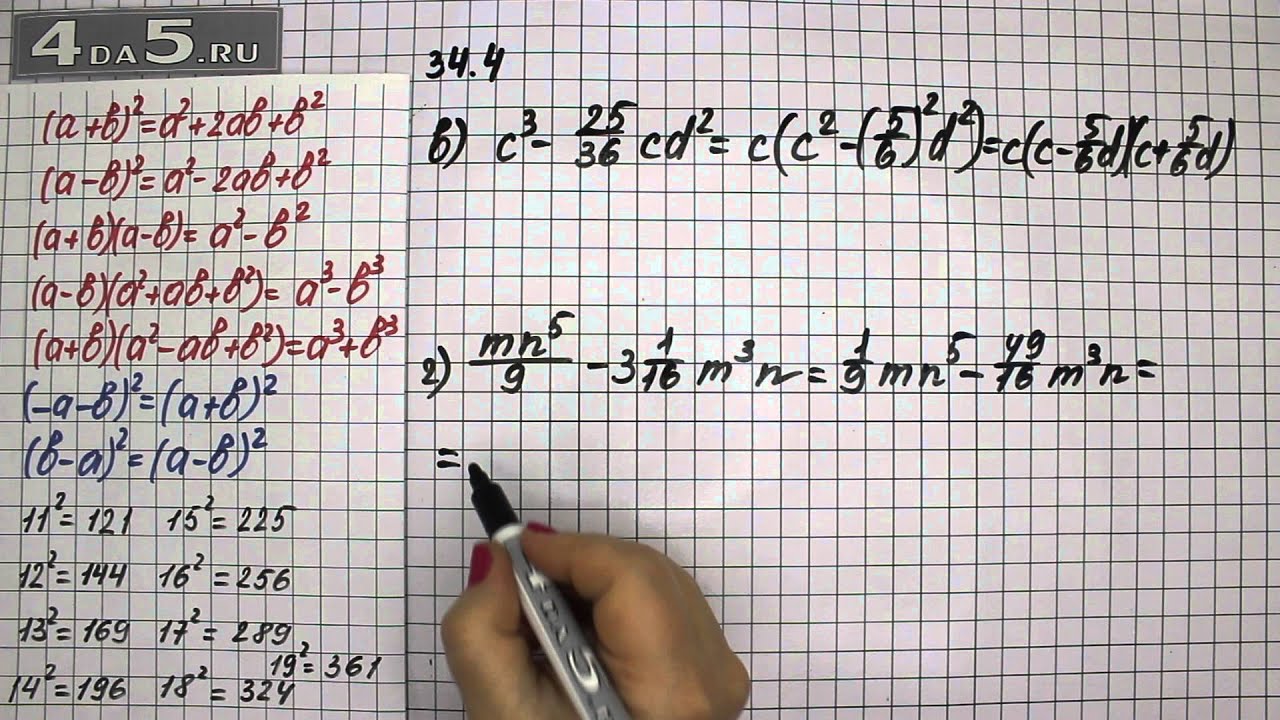 4DA5.RU
(a+b)²=a²+2ab+b²
(a-b)²=a²-2ab+b²
(a+b)(a-b)=a²-b²
(a-b)(a²+ab+b²)=a³-b³
(a+b)(a²-ab+b²)=a³+b³
(-a-b)²=(a+b)²
(b-a)²=(a-b)²
11²=121 15²=225
12²=144 16²=256
13²=169 17²=289
19²=361
14²=196 18²=324
34.4
в) c³ - 25/36 cd² = c(c²-(5/6)²d²)=c(c-5/6d)(c+5/6d)
г) mn⁵/9 - 3 1/16 m³n = 1/9 mn⁵ - 49/16 m³n =
=